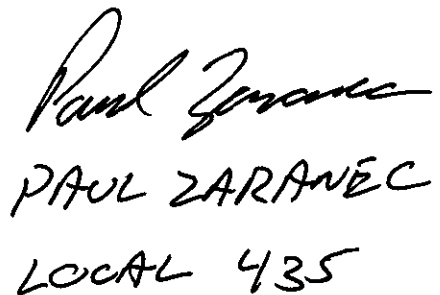 Paul Zaranec
PAUL ZARANEC
LOCAL 435